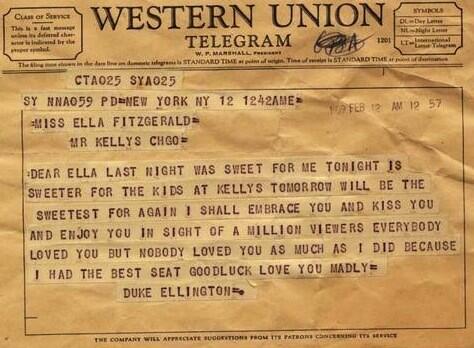 CLASS OF SERVICE
This is a fast message
unless its deferred char-
acter is indicated by the
proper symbol.
WESTERN UNION
TELEGRAM
W. P. MARSHALL, PRESIDENT
1201
SYMBOLS
DL=Day Letter
NL=Night Letter
LT=International Letter Telegram
The filing time shown in the date line on domestic telegrams is STANDARD TIME at point of origin. Time of receipt is STANDARD TIME at point of destination
CTA025 SYA025
SY NNA059 PD=NEW YORK NY 12 1242AME=
FEB 12 AM 12 57
MISS ELLA FITZGERALD=
MR KELLYS CHGO=
DEAR ELLA LAST NIGHT WAS SWEET FOR ME TONIGHT IS
SWEETER FOR THE KIDS AT KELLYS TOMORROW WILL BE THE
SWEETEST FOR AGAIN I SHALL EMBRACE YOU AND KISS YOU
AND ENJOY YOU IN SIGHT OF A MILLION VIEWERS EVERYBODY
LOVED YOU BUT NOBODY LOVED YOU AS MUCH AS I DID BECAUSE
I HAD THE BEST SEAT GOODLUCK LOVE YOU MADLY=
DUKE ELLINGTON=
THE COMPANY WILL APPRECIATE SUGGESTIONS FROM ITS PATRONS CONCERNING ITS SERVICE